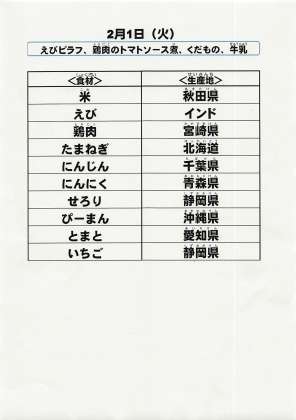 2月1日（火）
えびピラフ、鶏肉のトマトソース煮、くだもの、牛乳
＜食材＞ ＜生産地＞
米 秋田県
えび インド
鶏肉 宮崎県
たまねぎ 北海道
にんじん 千葉県
にんにく 青森県
せろり 静岡県
ぴーまん 沖縄県
とまと 愛知県
いちご 静岡県